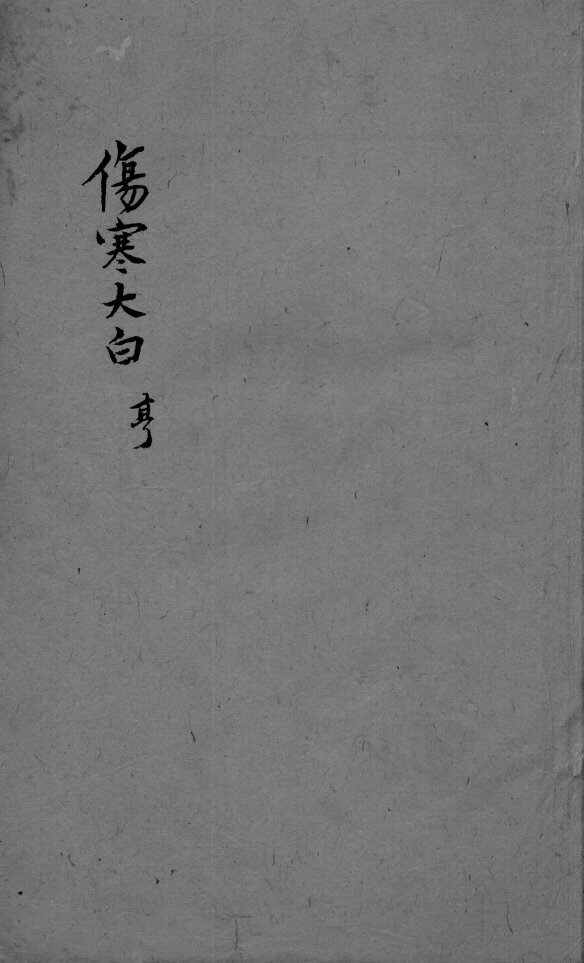 傷寒大白
亨